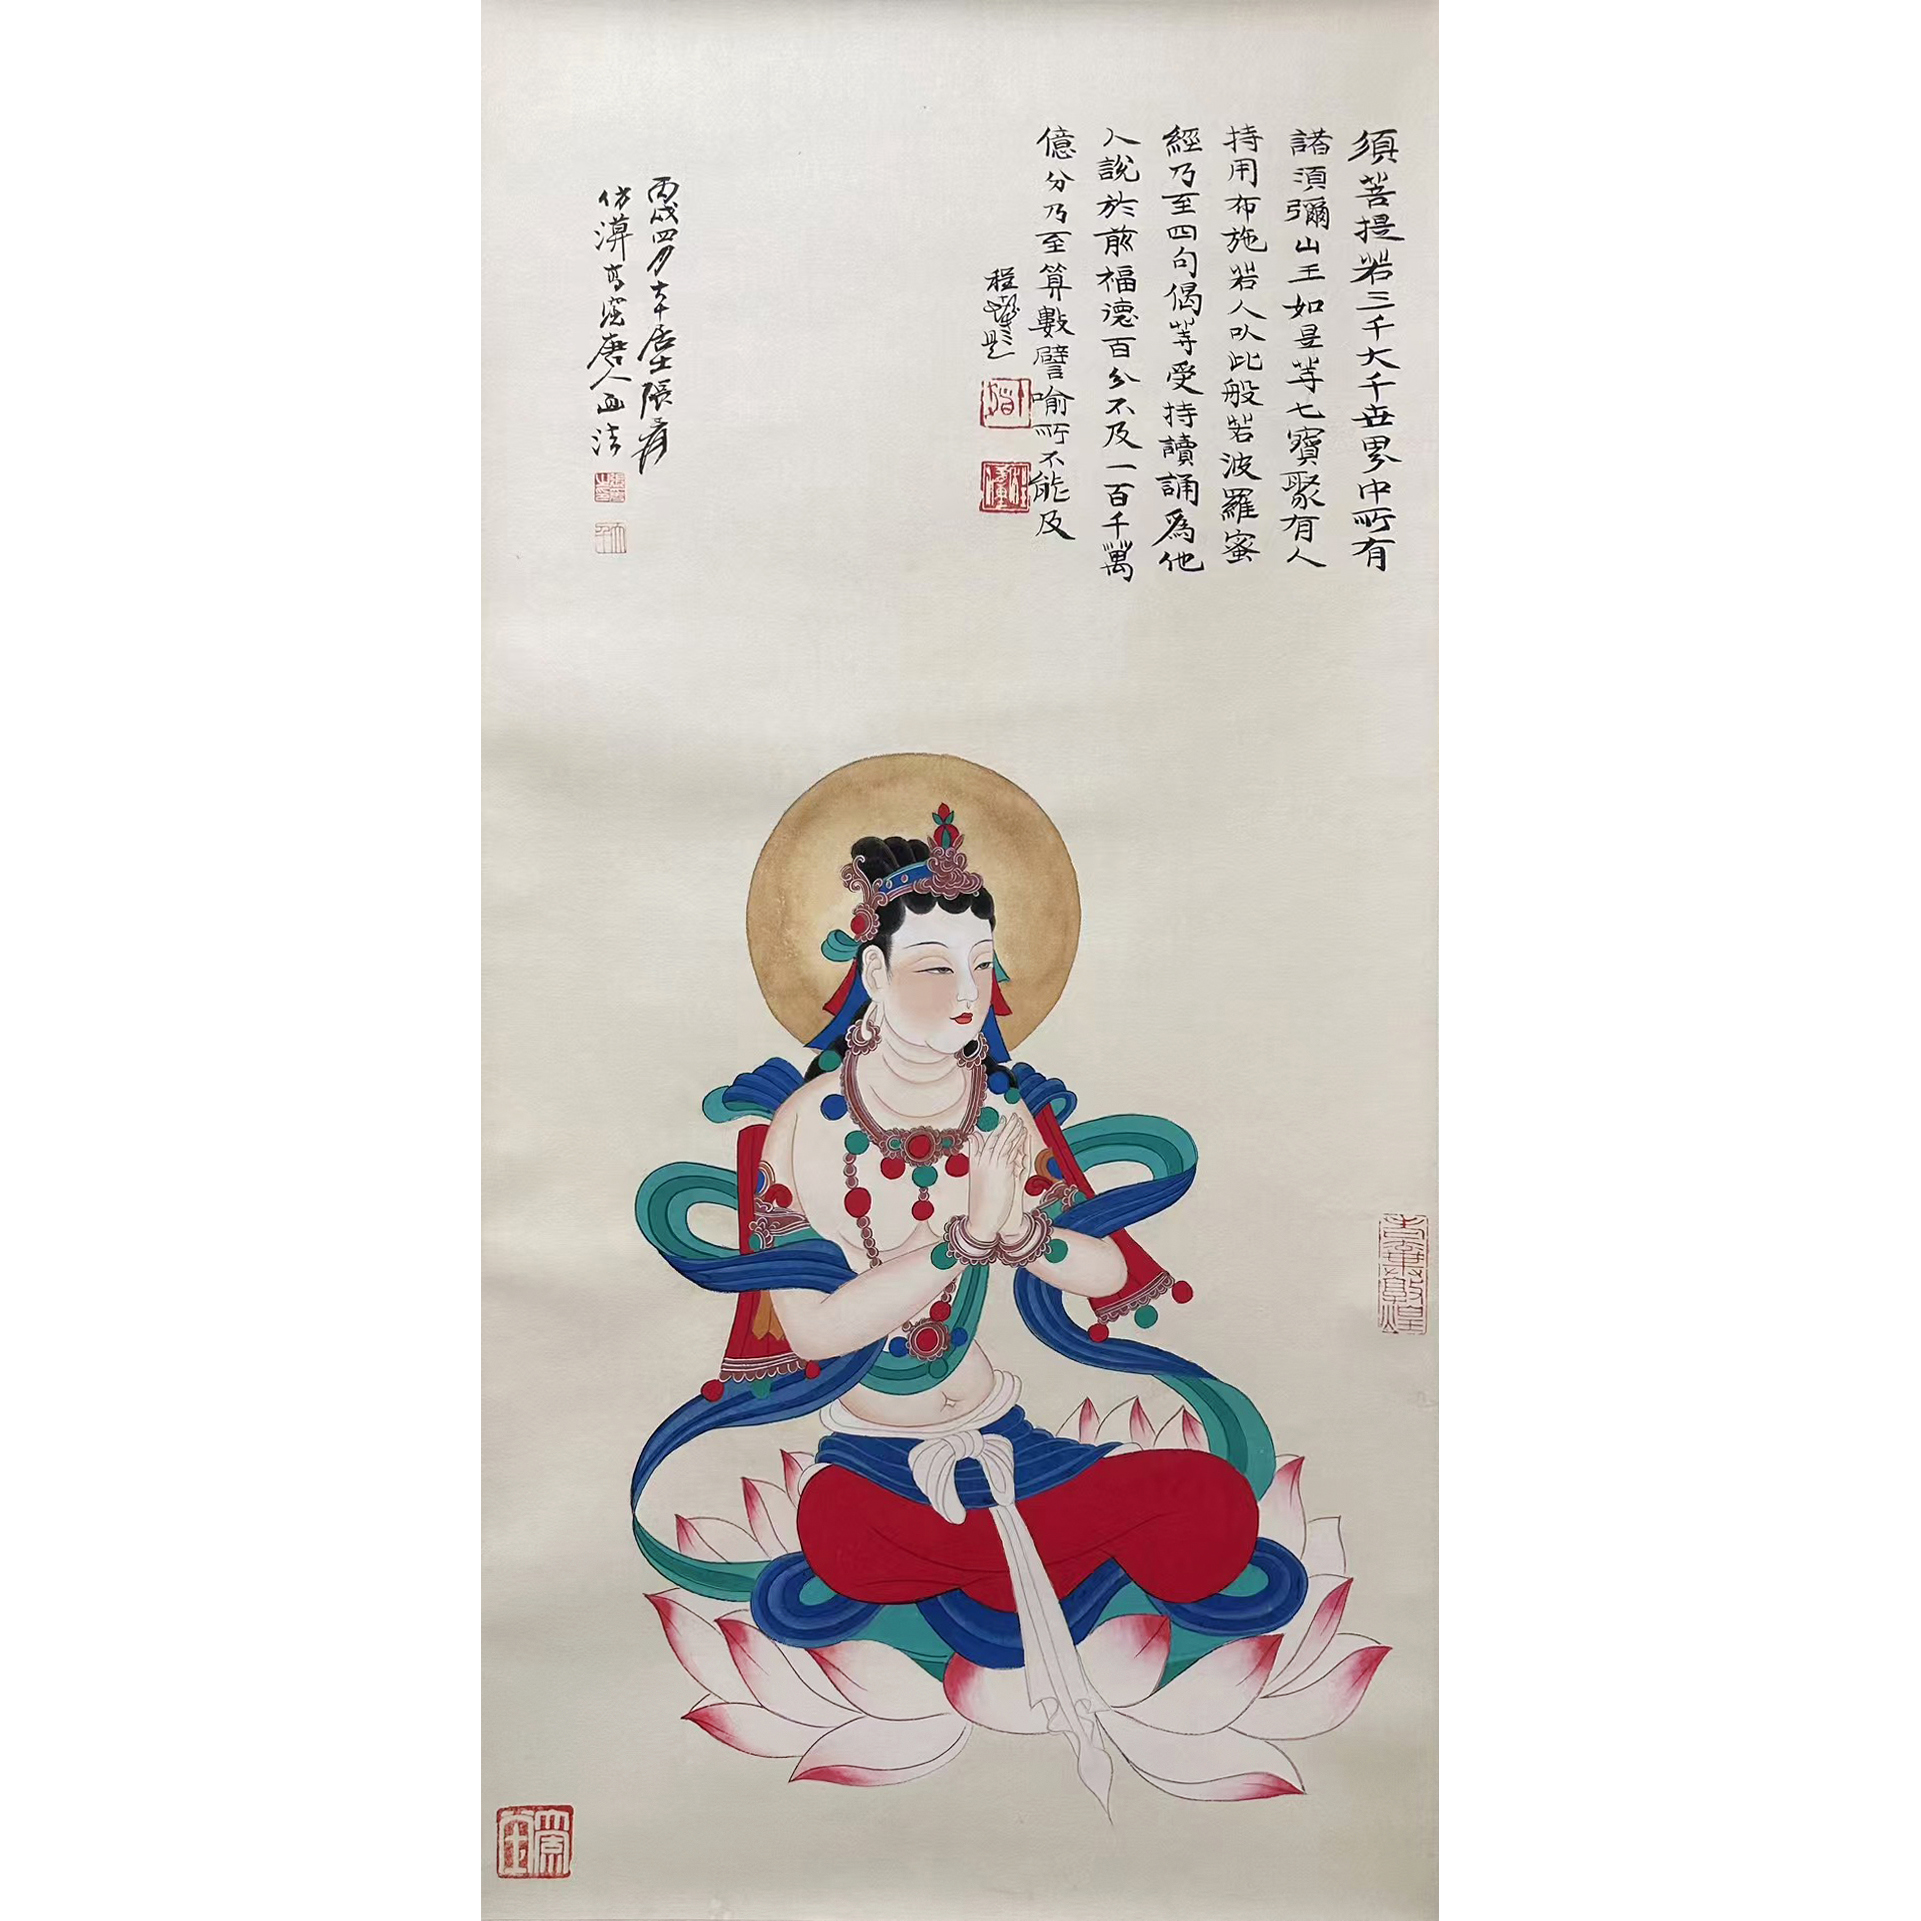 須菩提若三千大千世界中所有
諸須彌山王如是等七寶聚有人
持用布施若人以此般若波羅蜜
經乃至四句偈等受持讀誦爲他
人說於前福德百分不及一百千萬
億分乃至算數譬喻所不能及
程題
丙戌四月大千居士張爰
仿漠高窟唐人画法
大千